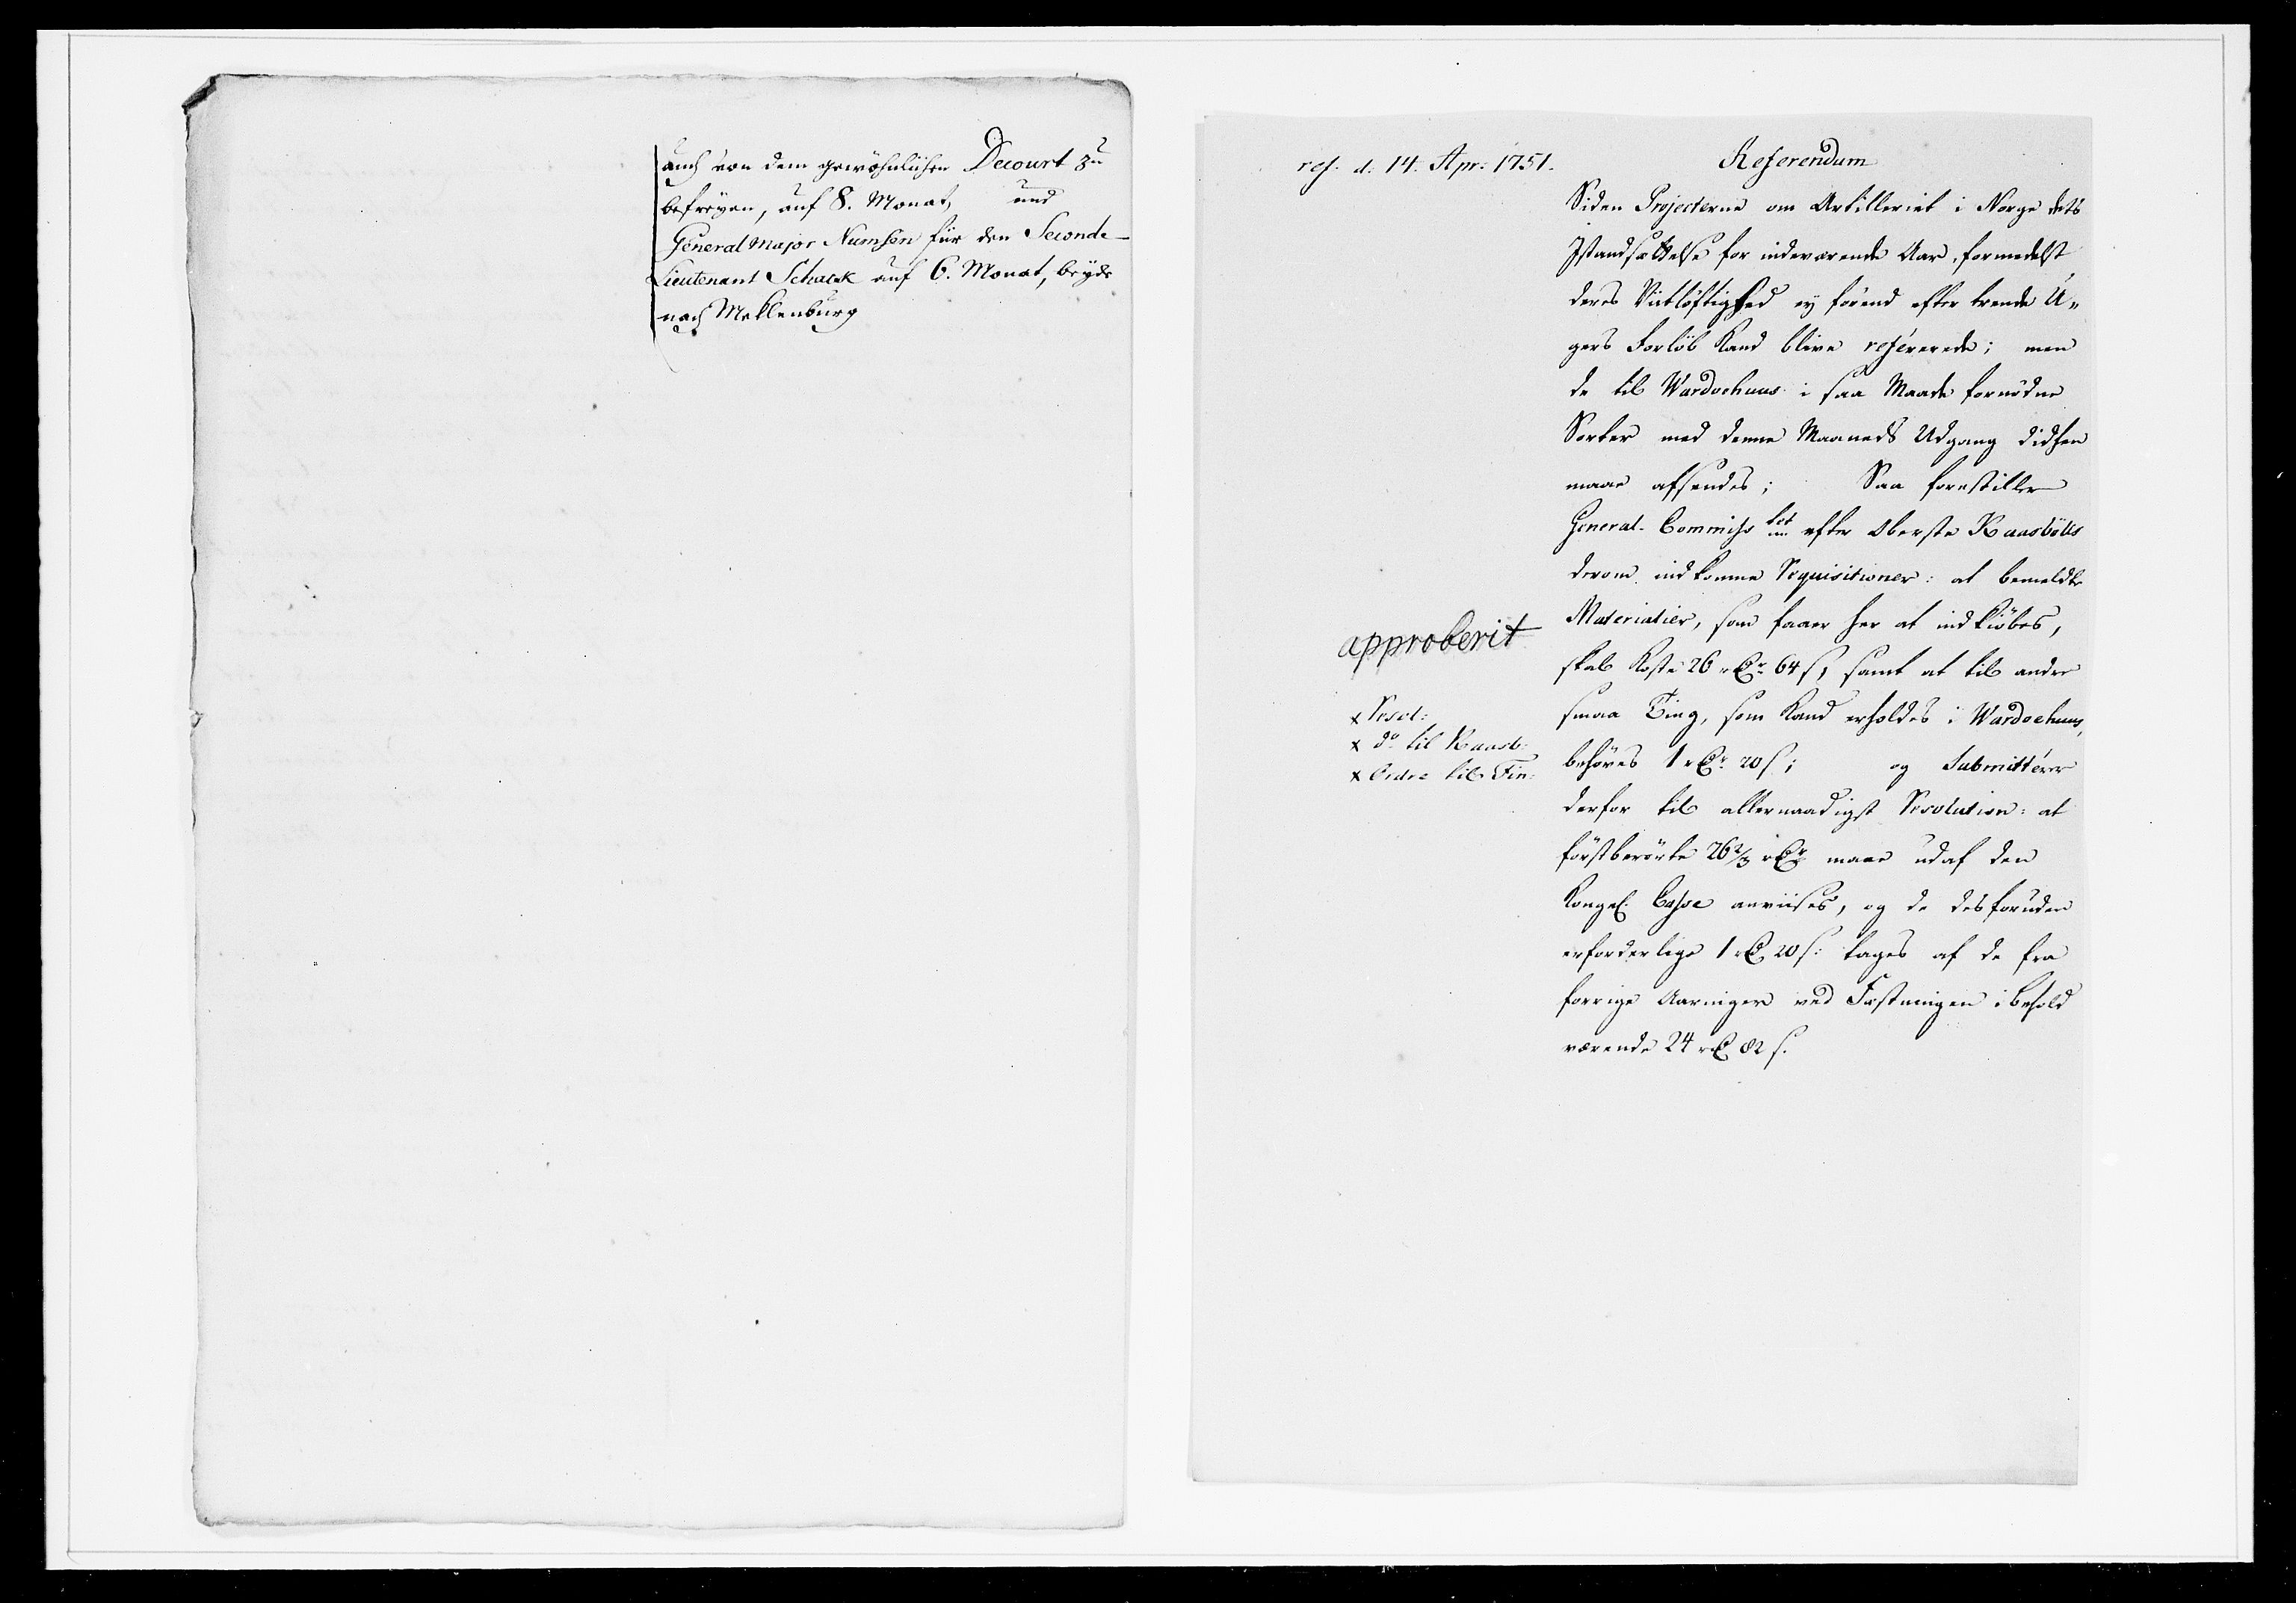 auch von dem gewöhnlichen Decourt zu
befreyen, auf 8. Monat, und
General Major Numsen für den Seconde-
Lieutenant Schack auf 6. Monat, beyde
nach Meklenburg
ref. d. 14. Apr: 1751.
Referendum
Siden Projecterne om Artilleriet i Norge dets
Istandsættelse for indeværende Aar, formedelst
deres Vitløftighed ej førend efter trende U-
gers Forløb kand blive refererede; men
de til Wardoehuus i saa Maade fornødne
Sorter med denne Maaneds Udgang didhen
maae afsendes; Saa forestiller
General-Commiss: tet efter Oberste Kaasbölls
derom indkomne Requisitioner: at bemeldte
Materialier, som faaer her at indkiøbes,
skal koste 26 rdr 64 s, samt at til andre
smaa Ting, som kand erholdes i Wardoehuus,
behøves 1 rdr 20 s; og Submitterer
derfor til allernaadigst Resolution: at
førstberørte 26 2/3 rdr maae udaf den
Kongel. Casse anviises, og de desforuden
erforderlige 1 rd 20 s: tages af de fra
forrige Aaringer ved Fæstningen i behold
værende 24 rd 82 s.
approberit
x Resol:
x do til Kaasb:
x Ordre til Fin: